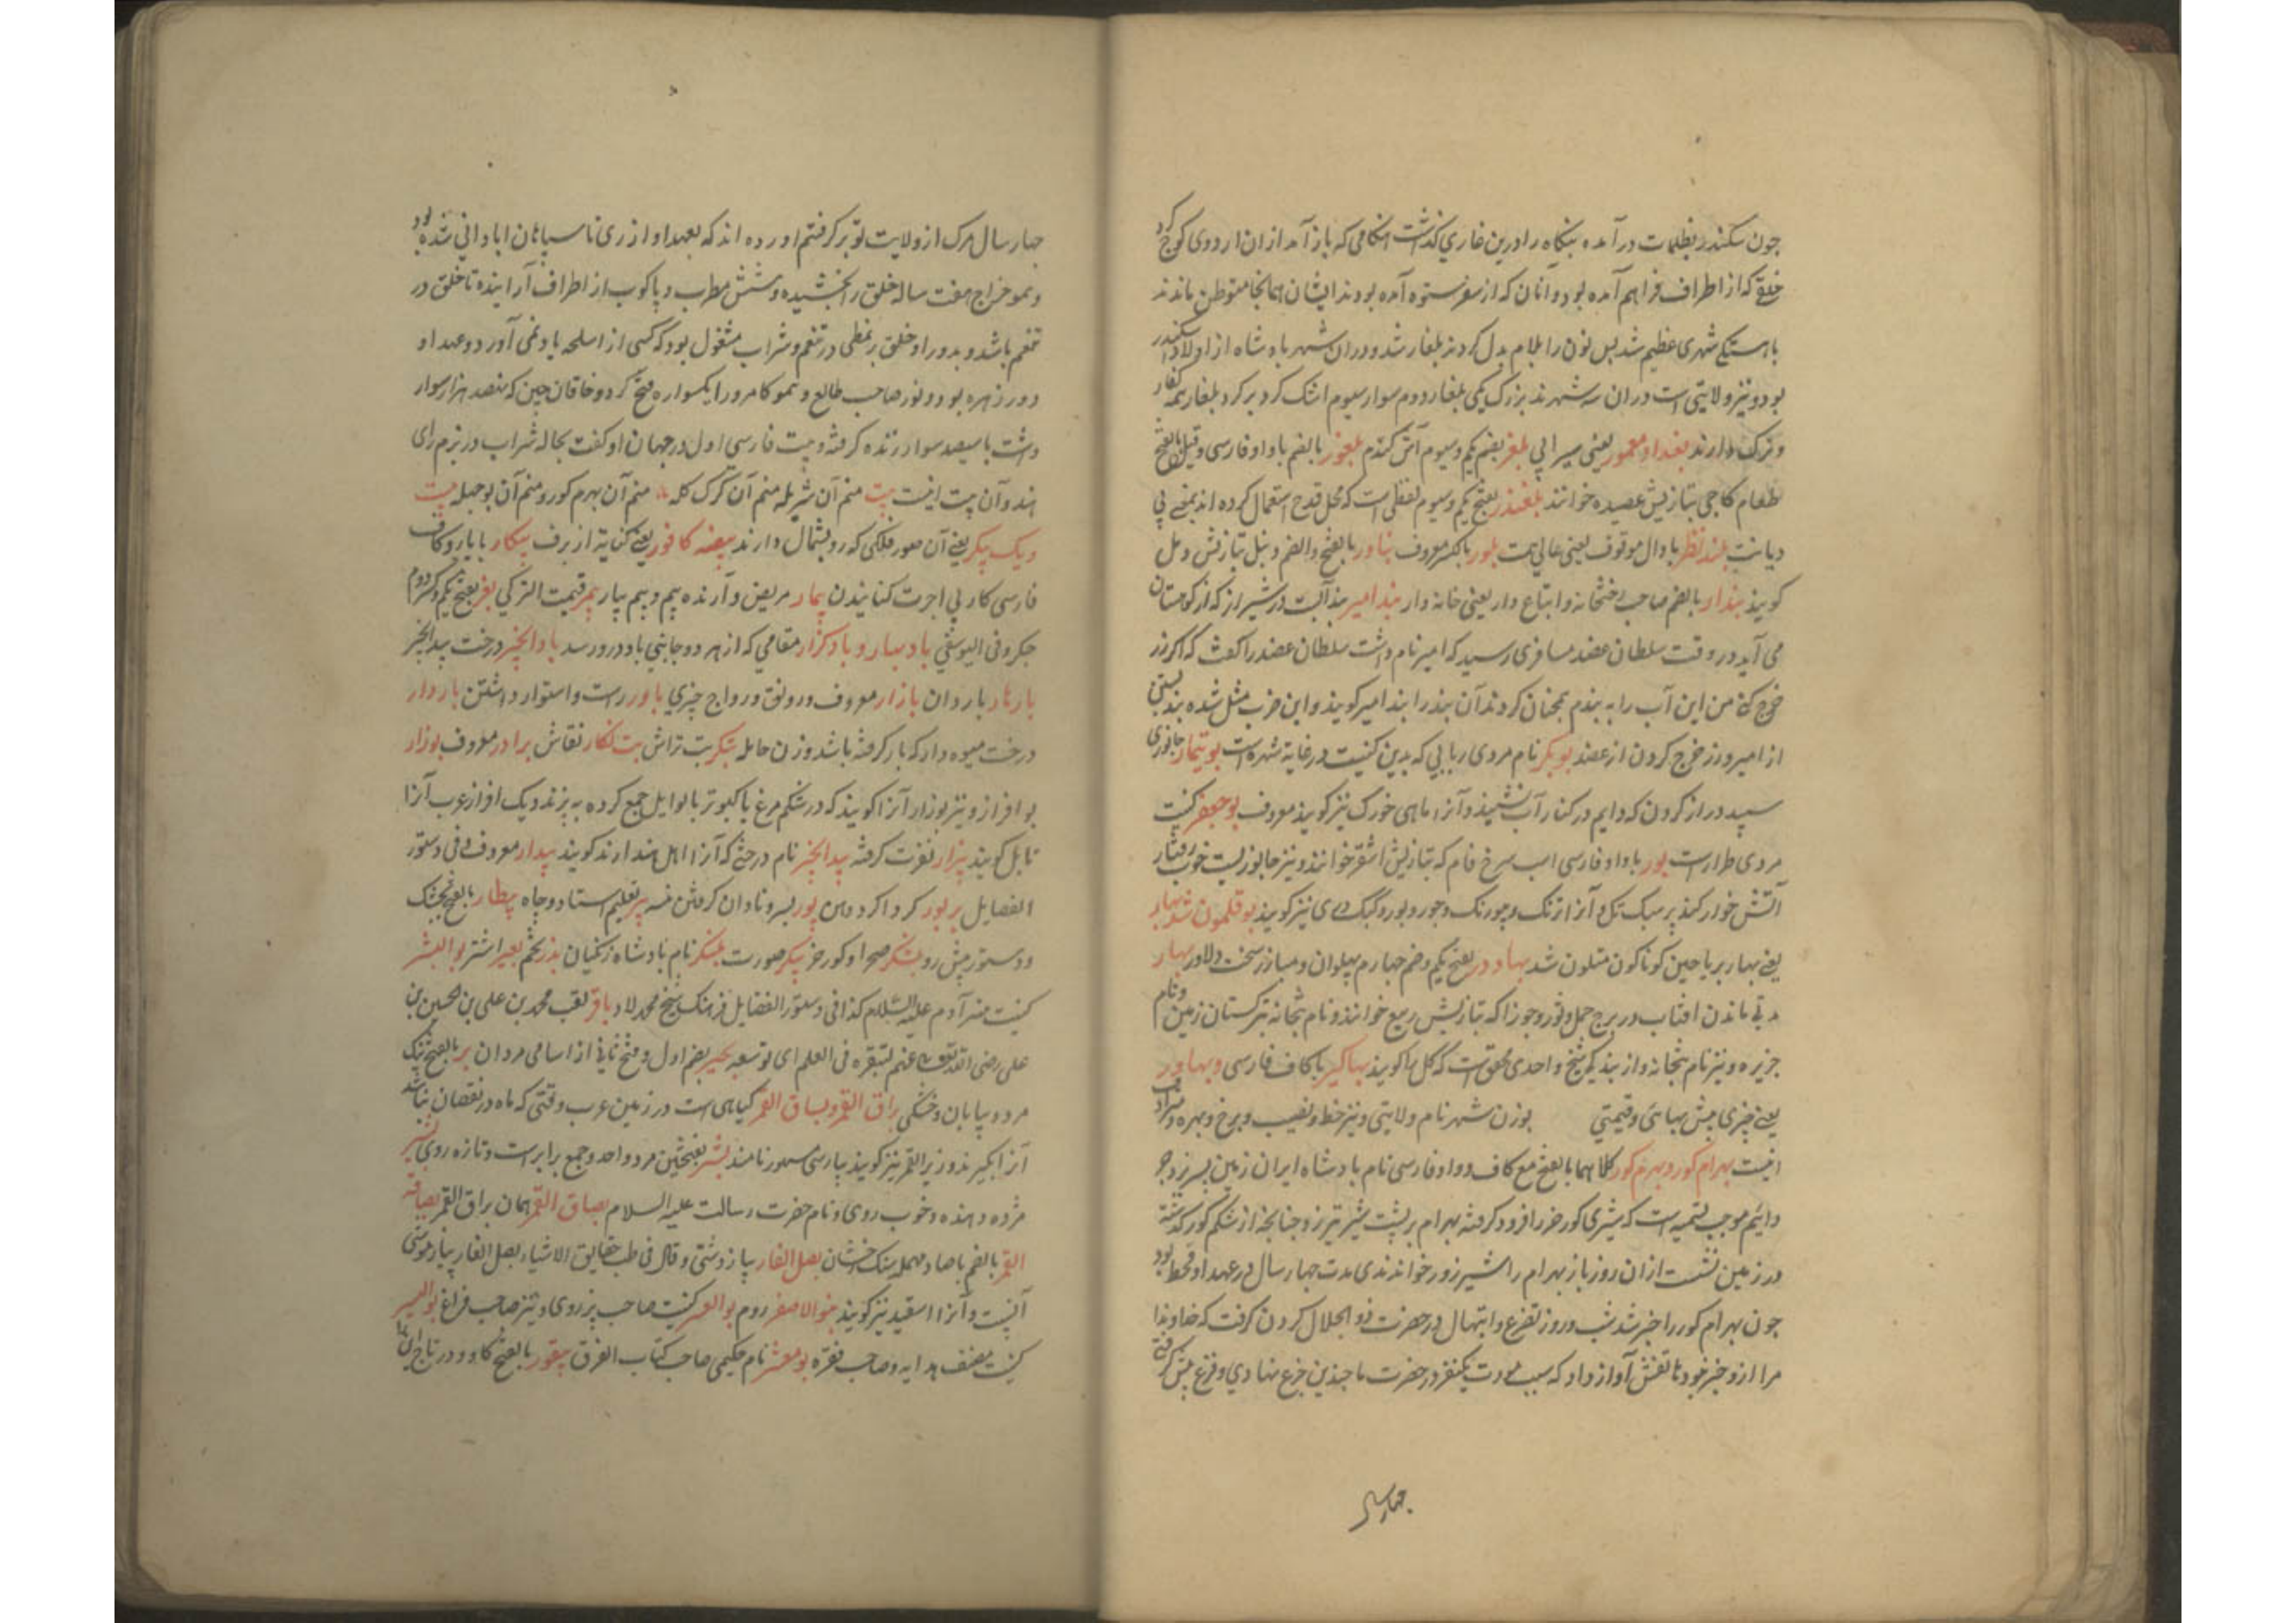 چون سکندر بظلمات در آمده بنکاه را درین غاری کذاشت هنکامی که باز آمد ازان اردوی کوچ کرد
خلق که از اطراف فراهم آمده بود و آنان که از سفر ستوه آمده بودند ایشان همانجا متوطن ماندند
باهستکی شهری عظیم شد پس نون را بلام بدل کردند بلغار شد و دران شهر بادشاه از اولاد اسکندر
بود و نیز ولایتی است دران سه شهرند بزرک یکی بلغار دوم سوار سیوم کرد بر کرد بلغار همه کفار
و ترک دارند بغداد معمور یعنی سیرابی بلغر بضم یکم و سیوم آش کندم بلغور بالضم با واو فارسی و قیل بالفتح
طعام کاچی بتازیش عصیده خوانند بلغندر بفتح یکم و سیوم لفظی است که بمحل قدح استعمال کرده اند بمعنی بی
دیانت بلند نظر با دال موقوف یعنی عالی همت بلور بالکسر معروف بناور بالفتح والضم دنبل بتازیش دمل
کویند بندار بالضم صاحب دختخانه و ابتاع دار یعنی خانه دار بند امیر بند آبست در شیراز که از کوهستان
می آید در وقت سلطان عضد مسافری رسید که امیر نام داشت سلطان عضد را کفت که اکر زر
خرج کنی من این آب را به بندم همچنان کردند آن بند را بند امیر کویند و این ضرب مثل شده بند بستن
از امیر و زر خرج کردن از عضد بوبکر نام مردی ربابی که بدین کنیت در غایة شهره است بوتیمار جانوری
سپید دراز کردن که دایم در کنار آب نشیند و آنرا ماهی خورک نیز کویند معروف بوجعفر کنیت
مردی طرارست بور با واو فارسی اسب سرخ فام که بتازیش اشقر خوانند و نیز جانوریست خوب رفتار
آتش خوار کند پر سبک تک آنرا تزنک و چورنک و چور و بور و کبک دری نیز کویند بوقلمون شد بهار
یعنی بهار بریاحین کوناکون متلون شد بهادر بفتح یکم و ضم چهارم پهلوان و مبارز سخت دلاور بهار
مدتی ماندن افتاب در برج حمل و ثور و جوزا که بتازیش ربیع خوانند و نام بتخانه بترکستان زمین و نام
جزیره و نیز نام بتخانه و از بندیکی شیخ واحدی محقق است که کل را کویند بهاکیر با کاف فارسی و بهاور
یعنی چیزی بیش بهائی و قیمتی بوزن شهر نام ولایتی و نیز خط و نصیب و برخ و بهره و مراد
انیست بهرام کور و بهرم کور کلاهما بالفتح مع کاف و واو فارسی نام بادشاه ایران زمین پسر یزدجرد
دایم موجب تسمیه است که شیری کور خر را فرود کرفته بهرام بر پشت شیر تیر زد چنانچه از شکم کور کذشته
در زمین نشست ازان روز باز بهرام را شیر زور خواندندی مدت چهار سال در عهد او قحط بود
چون بهرام کور را خبر شد شب و روز تضرع و ابتهال در حضرت ذو الجلال کردن کرفت که خداوندا
مرا ازو خبر خود هاتفش آواز داد که سبب موت یکنفر در حضرت ما چندین جزع نهادی و فزع پیش کرفتی
چهار سال
چهار سال مرک از ولایت تو بر کرفتم اورده اند که بعهد او از ری تا سپاهان ابادانی شده بود
و همو خراج هفت ساله خلق را بخشیده و شش مطرب و پاکوب از اطراف آرانیده تا خلق در
تنعم باشد و بدور او خلق بر نمطی در تنعم و شراب مشغول بود که کسی از اسلحه یاد نمی آورد و عهد او
دور زهره بود و نوز صاحب طالع و همو کامرور ایکسواره فتح کرد و خاقان چین که سیصد هزار سوار
داشت با سیصد سوار زنده کرفته و بیت فارسی اول در جهان او کفت بحاله شراب در بزم رای
هند و آن بیت اینست بیت منم آن شیر یله منم آن کرک کله منم آن بهرم کور و منم آن بوجبله بیت
و یک پیکر یعنی آن صور فلکی که رو بشمال دارند بیضه کافور یعنی کنایة از برف بیکار با یاء و کاف
فارسی کار بی اجرت کنانیدن بیمار مریض و آرنده بیم و بیم بیار بیمر قیمت الترکی بغر بفتح یکم و کسر دوم
جکر و فی الیوسفی باد بهار و بادکزار مقامی که از هر دو جانبی باد در رسد باد انجیر درخت بید انجیر
بارنار باردان بازار معروف و رونق و رواج چیزی باور راست و استوار داشتن باردار
درخت میوه دار که بار کرفته باشد و زن حامله بتکر بت تراش بت نکار نقاش برادر معروف بوزار
بو افزار و نیز بوزار آنرا کویند که در شکم مرغ یا کبوتر با لوابل جمع کرده به پزند و یک افزار عرب آنرا
تابل کویند بیزار نفرت کرفته بید انجیر نام درختی که آنرا اهل هند ارند کویند بیدار معروف و فی دستور
الفضایل بربور کرداکرد دهن پور پسر و نادان کرفتن نسه پیر تعلیم استاد و چاه بیطار بالفتح بجشک
و دستور پیش رو بشکر صحرا و کور خر پیکر صورت بلنکر نام بادشاه زنکیان بذر تخم بعیر اشتر بوالبشر
کنیت مهتر آدم علیه السلام کذا فی دستور الفضایل فرهنک شیخ محمد لاد باقر لقب محمد بن علی بن الحسین بن
علی رضی الله تعالی عنهم لتبقره فی العلم ای توسعه بحیر بضم اول و فتح ثانی از اسامی مردان بر بالفتح نیک
مرد و بیابان و خشکی بزاق القمر و بساق القمر کیاهی است در زمین عرب وقتی که ماه در نقصان نباشد
آنرا بکیرند و زبر القمر نیز کویند بپارسی سمور نامند بشر بفتحتین مرد واحد و جمع برابرست و تازه روی بشیر
مژده دهنده و خوب روی و نام حضرت رسالت علیه السلام بصاق القمر همان بزاق القمر بصاقة
القمر بالضم با صاد مهمله سنک رخشان بصل الفار پیاز دشتی و قال فی طب حقایق الاشیاء بصل الفار پیاز موشی
آنیست و آنرا اسقید نیز کویند بنوالاصفر روم بوالعسر کنیت صاحب پر روی و نیز صاحب فراغ بوالیسر
کنیت مصنف هدایه و صاحب فقره بومعشر نام حکیمی صاحب کتاب الفرق بیقور بالفتح کاو و در تاج